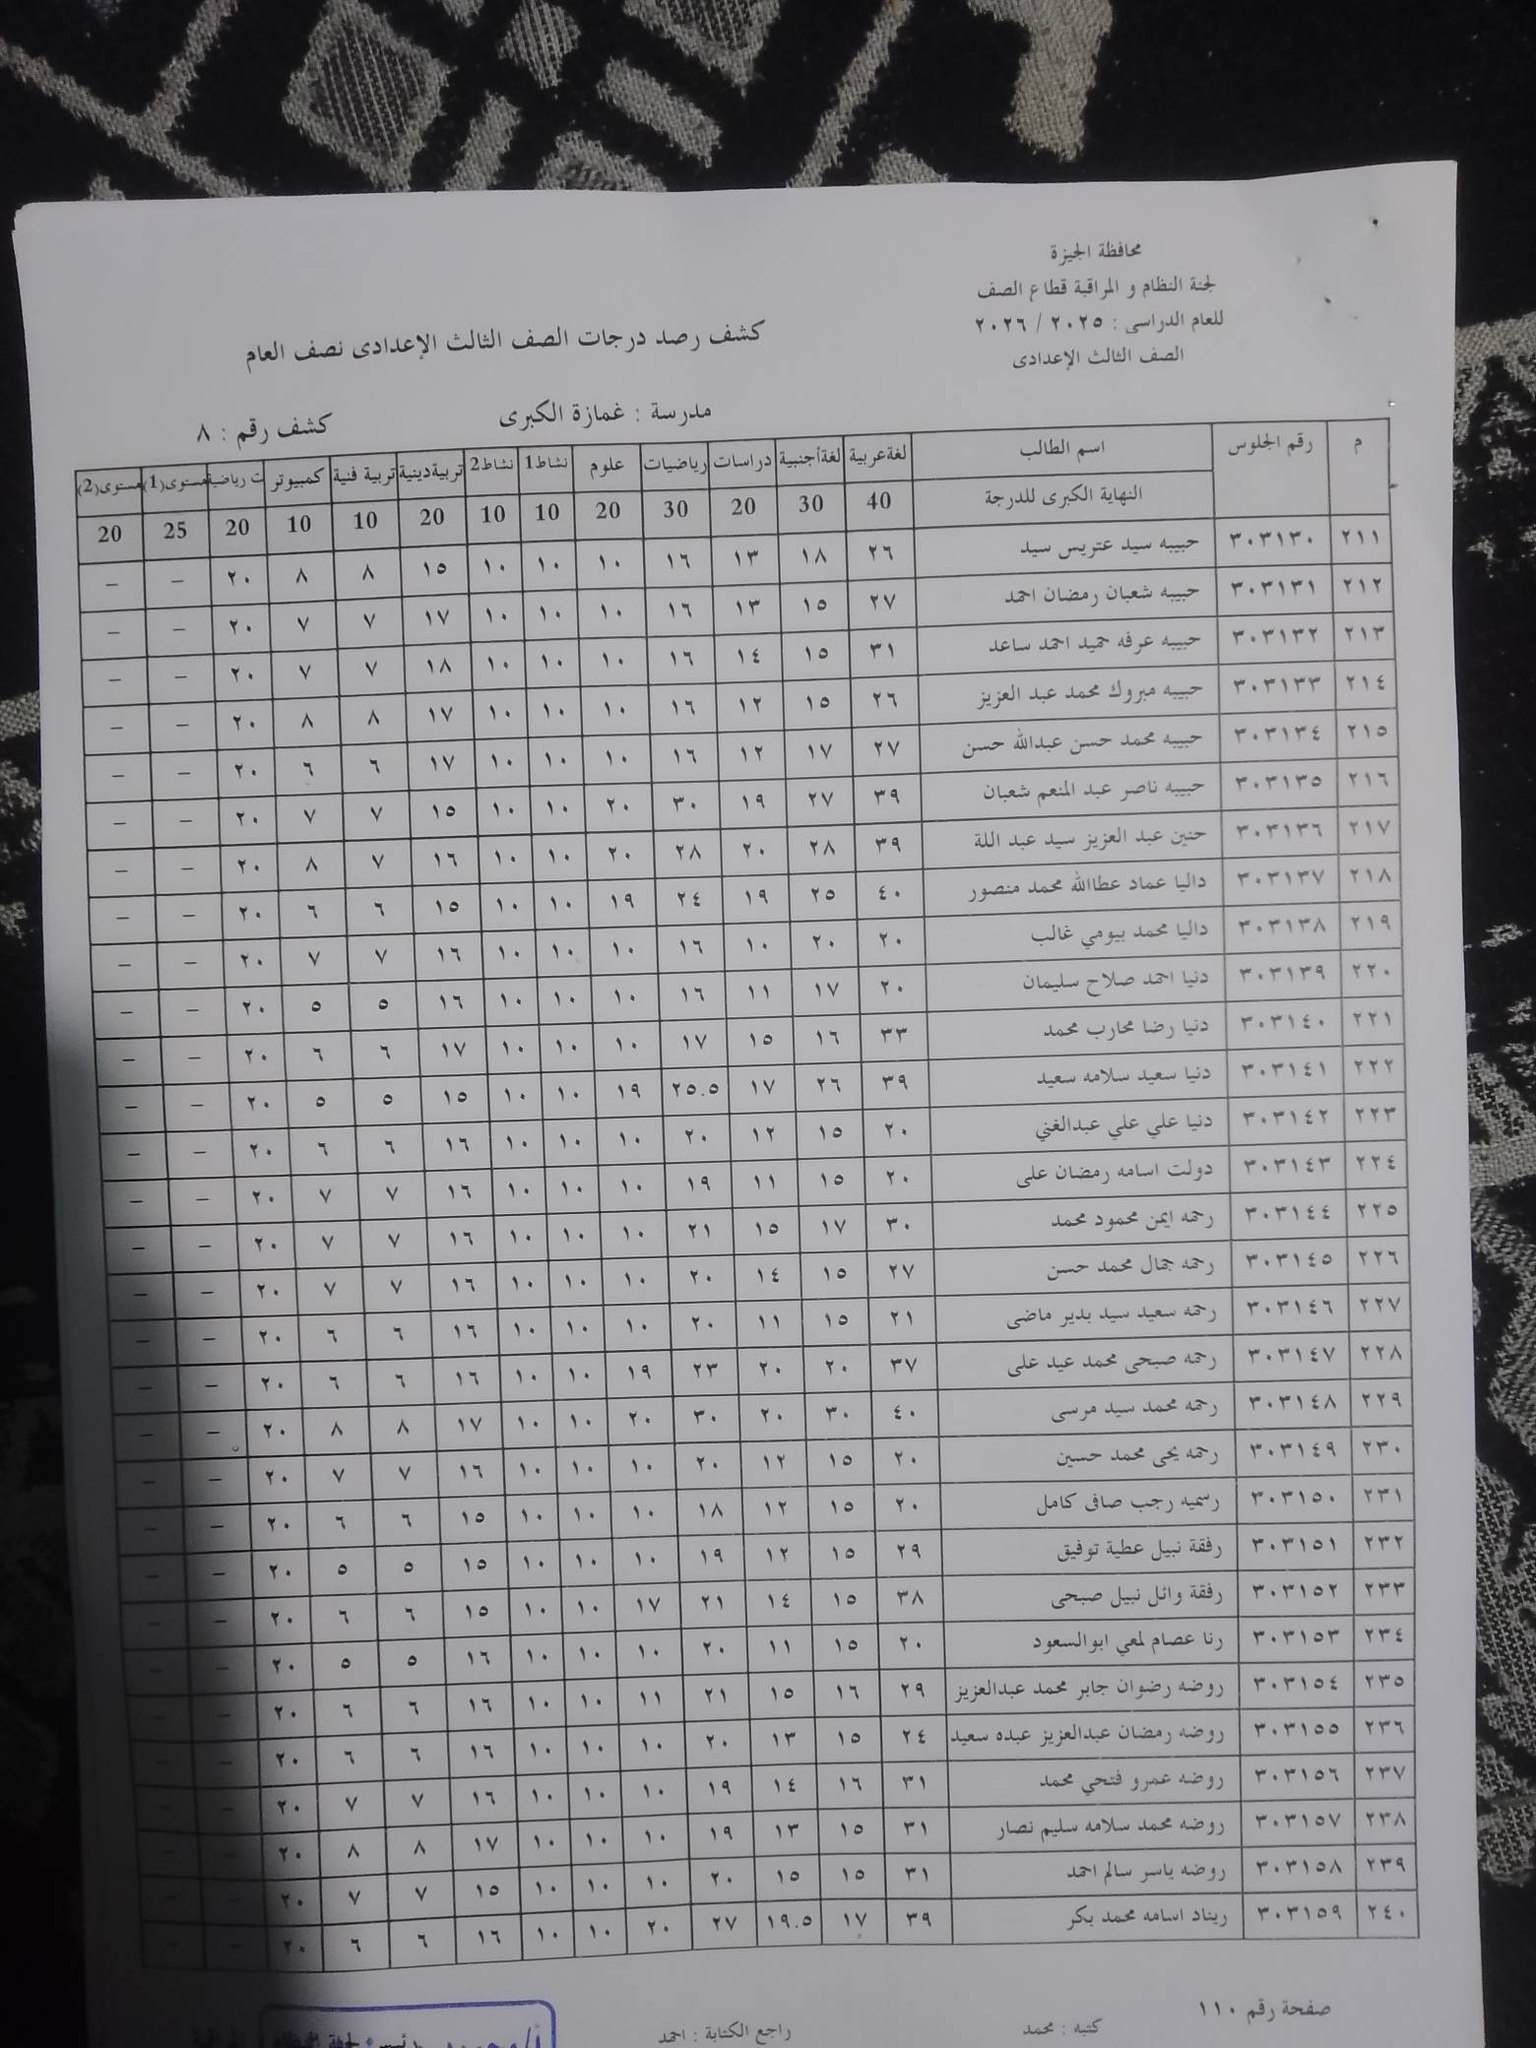 محافظة الجيزة
لجنة النظام و المراقبة قطاع الصف
للعام الدراسى : ٢٠٢٥ / ٢٠٢٦
الصف الثالث الإعدادى
كشف رصد درجات الصف الثالث الإعدادى نصف العام
مدرسة : غمازة الكبرى كشف رقم : ٨
م رقم الجلوس اسم الطالب لغة عربية لغة أجنبية دراسات رياضيات علوم نشاط1 نشاط2 تربية دينية تربية فنية كمبيوتر ت رياضية مستوى(1) مستوى(2)
النهاية الكبرى للدرجة 40 30 20 30 20 10 10 20 10 10 20 25 20
٢١١ ٣٠٣١٣٠ حبيبه سيد عتريس سيد ٢٦ ١٨ ١٣ ١٦ ١٠ ١٠ ١٠ ١٥ ٨ ٨ ٢٠ – –
٢١٢ ٣٠٣١٣١ حبيبه شعبان رمضان احمد ٢٧ ١٥ ١٣ ١٦ ١٠ ١٠ ١٠ ١٧ ٧ ٧ ٢٠ – –
٢١٣ ٣٠٣١٣٢ حبيبه عرفه حميد احمد ساعد ٣١ ١٥ ١٤ ١٦ ١٠ ١٠ ١٠ ١٨ ٧ ٧ ٢٠ – –
٢١٤ ٣٠٣١٣٣ حبيبه مبروك محمد عبد العزيز ٢٦ ١٥ ١٢ ١٦ ١٠ ١٠ ١٠ ١٧ ٨ ٨ ٢٠ – –
٢١٥ ٣٠٣١٣٤ حبيبه محمد حسن عبدالله حسن ٢٧ ١٧ ١٢ ١٦ ١٠ ١٠ ١٠ ١٧ ٦ ٦ ٢٠ – –
٢١٦ ٣٠٣١٣٥ حبيبه ناصر عبد المنعم شعبان ٣٩ ٢٧ ١٩ ٣٠ ٢٠ ١٠ ١٠ ١٥ ٧ ٧ ٢٠ – –
٢١٧ ٣٠٣١٣٦ حنين عبد العزيز سيد عبد اللة ٣٩ ٢٨ ٢٠ ٢٨ ٢٠ ١٠ ١٠ ١٦ ٧ ٨ ٢٠ – –
٢١٨ ٣٠٣١٣٧ داليا عماد عطاالله محمد منصور ٤٠ ٢٥ ١٩ ٢٤ ١٩ ١٠ ١٠ ١٥ ٦ ٦ ٢٠ – –
٢١٩ ٣٠٣١٣٨ داليا محمد بيومي غالب ٢٠ ٢٠ ١٠ ١٦ ١٠ ١٠ ١٠ ١٦ ٧ ٧ ٢٠ – –
٢٢٠ ٣٠٣١٣٩ دنيا احمد صلاح سليمان ٢٠ ١٧ ١١ ١٦ ١٠ ١٠ ١٠ ١٦ ٥ ٥ ٢٠ – –
٢٢١ ٣٠٣١٤٠ دنيا رضا محارب محمد ٣٣ ١٦ ١٥ ١٧ ١٠ ١٠ ١٠ ١٧ ٦ ٦ ٢٠ – –
٢٢٢ ٣٠٣١٤١ دنيا سعيد سلامه سعيد ٣٩ ٢٦ ١٧ ٢٥.٥ ١٩ ١٠ ١٠ ١٥ ٥ ٥ ٢٠ – –
٢٢٣ ٣٠٣١٤٢ دنيا علي علي عبدالغني ٢٠ ١٥ ١٢ ٢٠ ١٠ ١٠ ١٠ ١٦ ٦ ٦ ٢٠ – –
٢٢٤ ٣٠٣١٤٣ دولت اسامه رمضان على ٢٠ ١٥ ١١ ١٩ ١٠ ١٠ ١٠ ١٦ ٧ ٧ ٢٠ – –
٢٢٥ ٣٠٣١٤٤ رحمه ايمن محمود محمد ٣٠ ١٧ ١٥ ٢١ ١٠ ١٠ ١٠ ١٦ ٧ ٧ ٢٠ – –
٢٢٦ ٣٠٣١٤٥ رحمه جمال محمد حسن ٢٧ ١٥ ١٤ ٢٠ ١٠ ١٠ ١٠ ١٦ ٧ ٧ ٢٠ – –
٢٢٧ ٣٠٣١٤٦ رحمه سعيد سيد بدير ماضى ٢١ ١٥ ١١ ٢٠ ١٠ ١٠ ١٠ ١٦ ٦ ٦ ٢٠ – –
٢٢٨ ٣٠٣١٤٧ رحمه صبحى محمد عيد على ٣٧ ٢٠ ٢٠ ٢٣ ١٩ ١٠ ١٠ ١٦ ٦ ٦ ٢٠ – –
٢٢٩ ٣٠٣١٤٨ رحمه محمد سيد مرسى ٤٠ ٣٠ ٢٠ ٣٠ ٢٠ ١٠ ١٠ ١٧ ٨ ٨ ٢٠ – –
٢٣٠ ٣٠٣١٤٩ رحمه يحى محمد حسين ٢٠ ١٥ ١٢ ٢٠ ١٠ ١٠ ١٠ ١٦ ٧ ٧ ٢٠ – –
٢٣١ ٣٠٣١٥٠ رسميه رجب صافى كامل ٢٠ ١٥ ١٢ ١٨ ١٠ ١٠ ١٠ ١٥ ٦ ٦ ٢٠ – –
٢٣٢ ٣٠٣١٥١ رفقة نبيل عطية توفيق ٢٩ ١٥ ١٢ ١٩ ١٠ ١٠ ١٠ ١٥ ٥ ٥ ٢٠ – –
٢٣٣ ٣٠٣١٥٢ رفقة وائل نبيل صبحى ٣٨ ١٥ ١٤ ٢١ ١٧ ١٠ ١٠ ١٥ ٦ ٦ ٢٠ – –
٢٣٤ ٣٠٣١٥٣ رنا عصام لمعي ابوالسعود ٢٠ ١٥ ١١ ٢٠ ١٠ ١٠ ١٠ ١٦ ٥ ٥ ٢٠ – –
٢٣٥ ٣٠٣١٥٤ روضه رضوان جابر محمد عبدالعزيز ٢٩ ١٦ ١٥ ٢١ ١١ ١٠ ١٠ ١٦ ٦ ٦ ٢٠ – –
٢٣٦ ٣٠٣١٥٥ روضه رمضان عبدالعزيز عبده سعيد ٢٤ ١٥ ١٣ ٢٠ ١٠ ١٠ ١٠ ١٦ ٦ ٦ ٢٠ – –
٢٣٧ ٣٠٣١٥٦ روضه عمرو فتحي محمد ٣١ ١٦ ١٤ ١٩ ١٠ ١٠ ١٠ ١٦ ٧ ٧ ٢٠ – –
٢٣٨ ٣٠٣١٥٧ روضه محمد سلامه سليم نصار ٣١ ١٥ ١٣ ١٩ ١٠ ١٠ ١٠ ١٧ ٨ ٨ ٢٠ – –
٢٣٩ ٣٠٣١٥٨ روضه ياسر سالم احمد ٣١ ١٥ ١٥ ٢٠ ١٠ ١٠ ١٠ ١٥ ٧ ٧ ٢٠ – –
٢٤٠ ٣٠٣١٥٩ ريناد اسامه محمد بكر ٣٩ ١٧ ١٩.٥ ٢٧ ٢٠ ١٠ ١٠ ١٦ ٦ ٦ ٢٠ – –
صفحة رقم ١١٠
كتبه : محمد راجع الكتابة : احمد